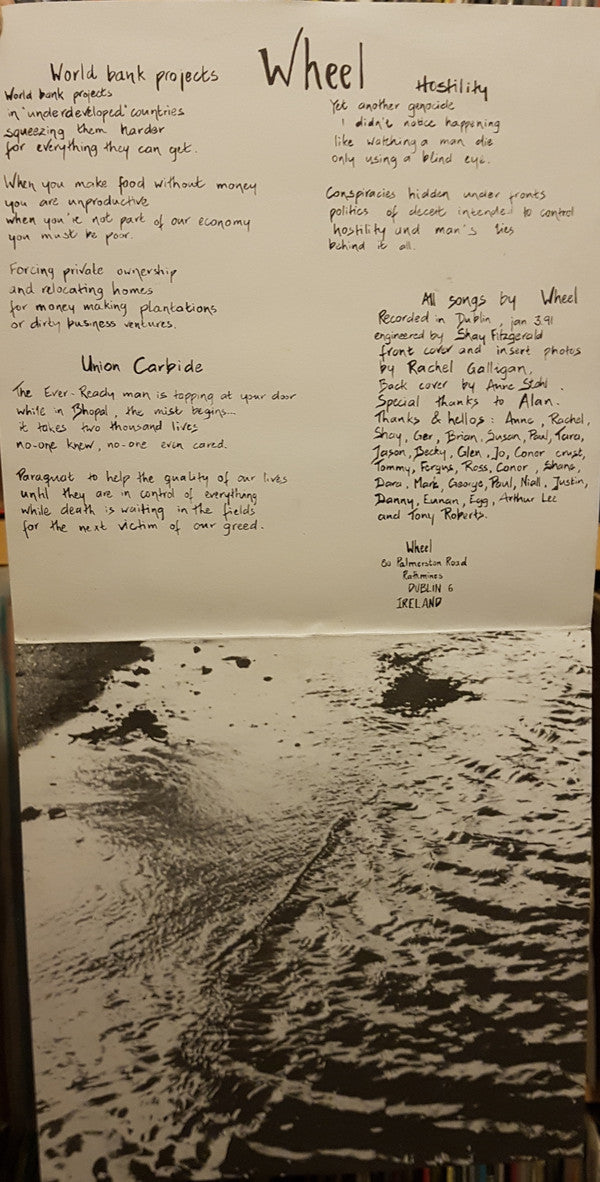 Wheel
World bank projects
World bank projects
in 'underdeveloped' countries
squeezing them harder
for everything they can get.
When you make food without money
you are unproductive
when you're not part of our economy
you must be poor.
Forcing private ownership
and relocating homes
for money making plantations
or dirty business ventures.
Union Carbide
The Ever-Ready man is tapping at your door
while in Bhopal, the mist begins...
it takes two thousand lives
no-one knew, no-one even cared.
Paraquat to help the quality of our lives
until they are in control of everything
while death is waiting in the fields
for the next victim of our greed.
Hostility
Yet another genocide
I didn't notice happening
like watching a man die
only using a blind eye.
Conspiracies hidden under fronts
politics of deceit intended to control
hostility and man's lies
behind it all.
All songs by Wheel
Recorded in Dublin, jan 3.91
engineered by Shay Fitzgerald
front cover and insert photos
by Rachel Galligan,
Back cover by Anne Stahl.
Special thanks to Alan.
Thanks & hellos: Anne, Rachel,
Shay, Ger, Brian, Susan, Paul, Tara,
Jason, Becky, Glen, Jo, Conor crust,
Tommy, Fergus, Ross, Conor, Shane,
Dara, Mark, George, Paul, Niall, Justin,
Danny, Eunan, Egg, Arthur Lee
and Tony Roberts.
Wheel
80 Palmerston Road
Rathmines
DUBLIN 6
IRELAND